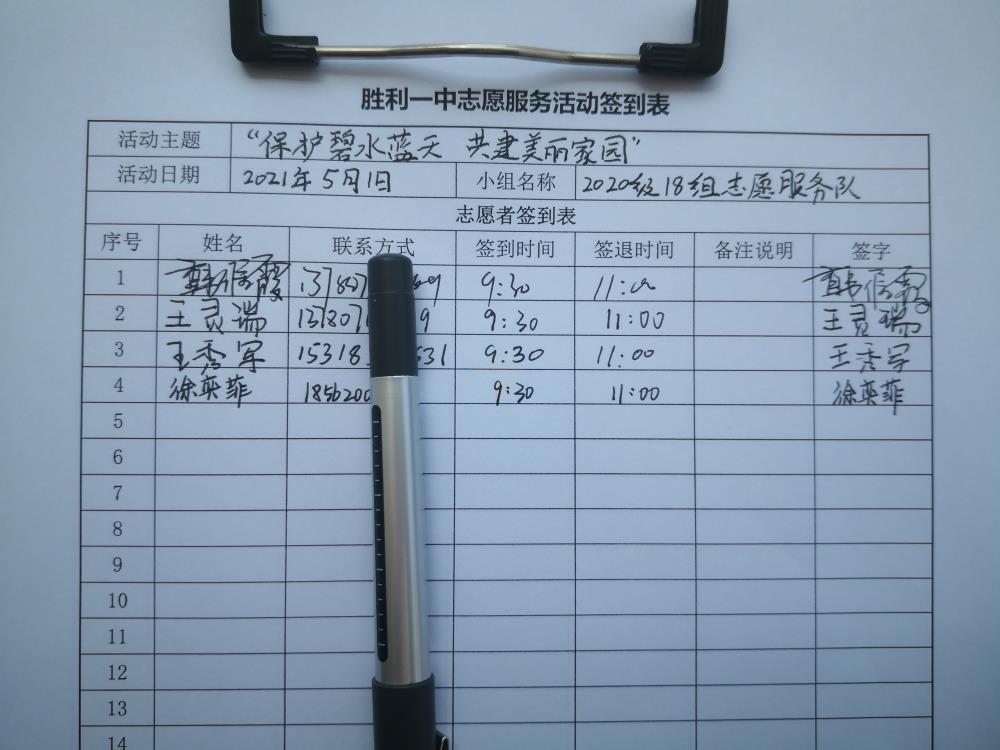 胜利一中志愿服务活动签到表
活动主题 “保护碧水蓝天 共建美丽家园”
活动日期 2021年5月1日 小组名称 2020级18组志愿服务队
志愿者签到表
序号 姓名 联系方式 签到时间 签退时间 备注说明 签字
1 韩信霞 9:30 11:00 韩信霞
2 王灵瑞 9:30 11:00 王灵瑞
3 王秀军 15318 531 9:30 11:00 王秀军
4 徐奕菲 1856200 9:30 11:00 徐奕菲
5
6
7
8
9
10
11
12
13
14